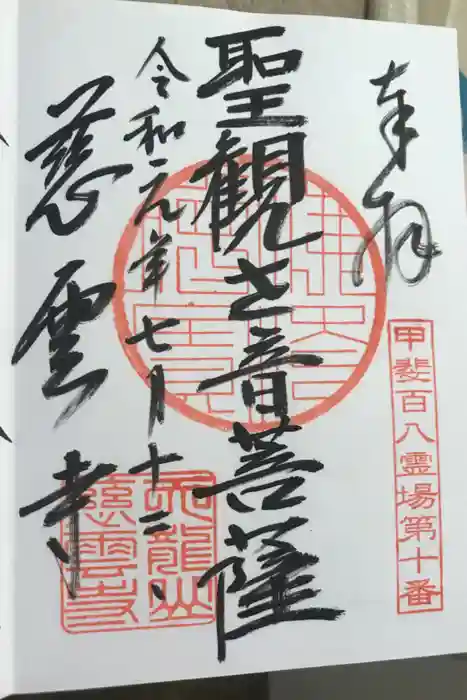 奉拝
甲斐百八霊場第十番
聖観世音菩薩
令和元年七月十二、
慈雲寺
天龍山
慈雲寺